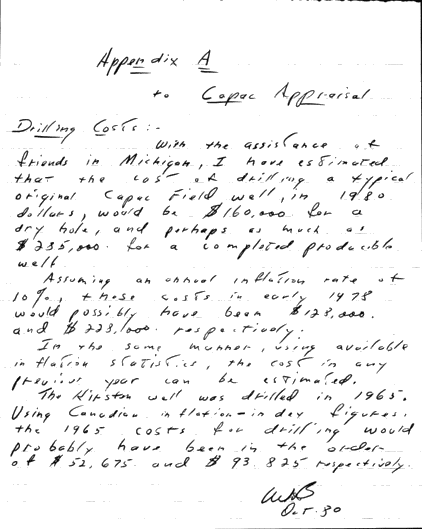 Appendix A
to Capac Appraisal
Drilling Costs:-
With the assistance of
friends in Michigan, I have estimated
that the cost of drilling a typical
original Capac Field well, in 1980
dollars, would be $160,000 for a
dry hole, and perhaps as much as
$235,000 for a completed producible
well.
Assuming an annual inflation rate of
10%, these costs in early 1978
would possibly have been $128,000.
and $223,000. respectively.
In the same manner, using available
inflation statistics, the cost in any
previous year can be estimated.
The Kirston well was drilled in 1965.
Using Canadian inflation-index figures,
the 1965 costs for drilling would
probably have been in the order
of $52,675 and $93,825 respectively.
Oct. 80